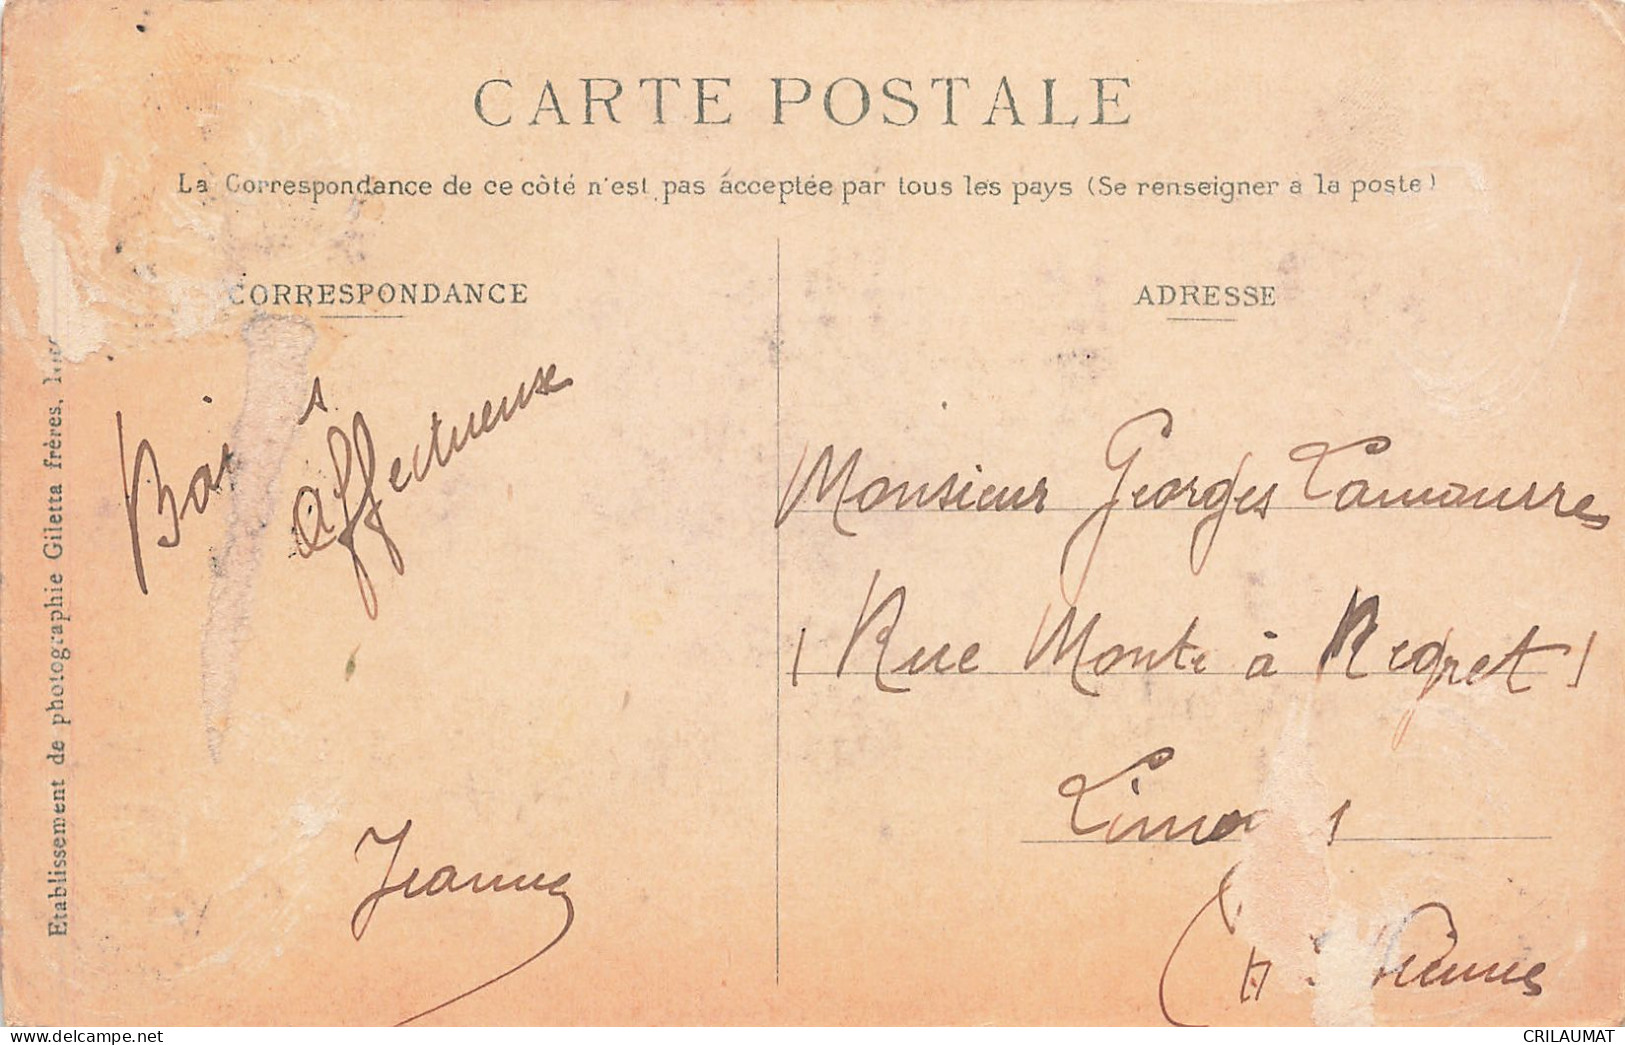 CARTE POSTALE
La Correspondance de ce côté n'est pas acceptée par tous les pays (Se renseigner a la poste)
CORRESPONDANCE
ADRESSE
Etablissement de photographie Giletta frères,
affectueux
Jeanne
Monsieur Georges Lamaurre
Rue Monte à Regret
Limoges
Hte Vienne
CRILAUMAT